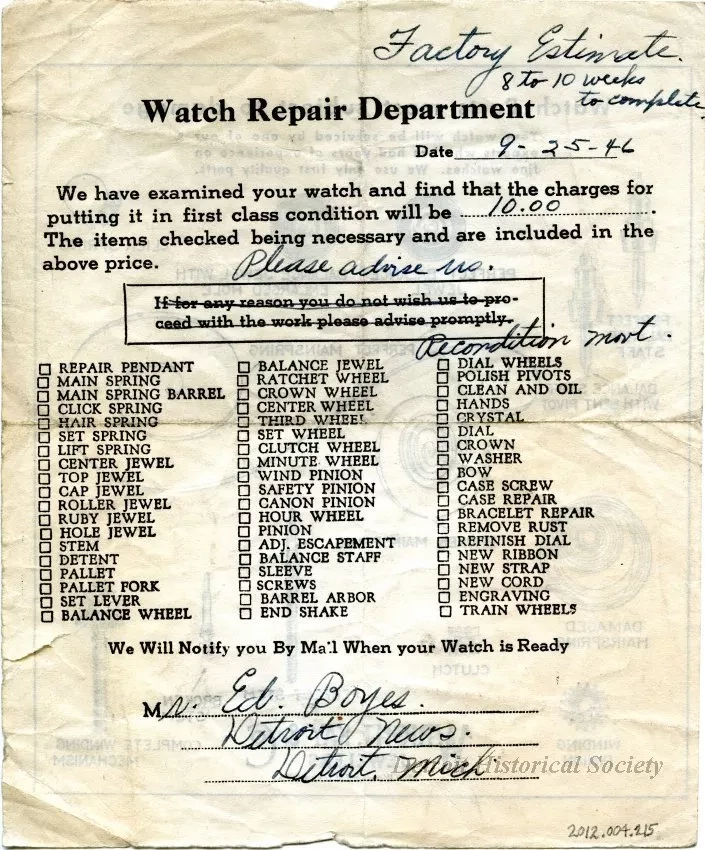 Factory Estimate.
8 to 10 weeks
to complete
Watch Repair Department
Date 9-25-46
We have examined your watch and find that the charges for
putting it in first class condition will be 10.00.
The items checked being necessary and are included in the
above price. Please advise us.
If for any reason you do not wish us to pro-
ceed with the work please advise promptly.
Recondition movt.
☐ REPAIR PENDANT
☐ MAIN SPRING
☐ MAIN SPRING BARREL
☐ CLICK SPRING
☐ HAIR SPRING
☐ SET SPRING
☐ LIFT SPRING
☐ CENTER JEWEL
☐ TOP JEWEL
☐ CAP JEWEL
☐ ROLLER JEWEL
☐ RUBY JEWEL
☐ HOLE JEWEL
☐ STEM
☐ DETENT
☐ PALLET
☐ PALLET FORK
☐ SET LEVER
☐ BALANCE WHEEL
☐ BALANCE JEWEL
☐ RATCHET WHEEL
☐ CROWN WHEEL
☐ CENTER WHEEL
☐ THIRD WHEEL
☐ SET WHEEL
☐ CLUTCH WHEEL
☐ MINUTE WHEEL
☐ WIND PINION
☐ SAFETY PINION
☐ CANON PINION
☐ HOUR WHEEL
☐ PINION
☐ ADJ. ESCAPEMENT
☐ BALANCE STAFF
☐ SLEEVE
☐ SCREWS
☐ BARREL ARBOR
☐ END SHAKE
☐ DIAL WHEELS
☐ POLISH PIVOTS
☐ CLEAN AND OIL
☐ HANDS
☐ CRYSTAL
☐ DIAL
☐ CROWN
☐ WASHER
☐ BOW
☐ CASE SCREW
☐ CASE REPAIR
☐ BRACELET REPAIR
☐ REMOVE RUST
☐ REFINISH DIAL
☐ NEW RIBBON
☐ NEW STRAP
☐ NEW CORD
☐ ENGRAVING
☐ TRAIN WHEELS
We Will Notify you By Mail When your Watch is Ready
Mr. Ed. Boyes.
Detroit News.
Detroit, Mich.
Detroit Historical Society
2012.004.215